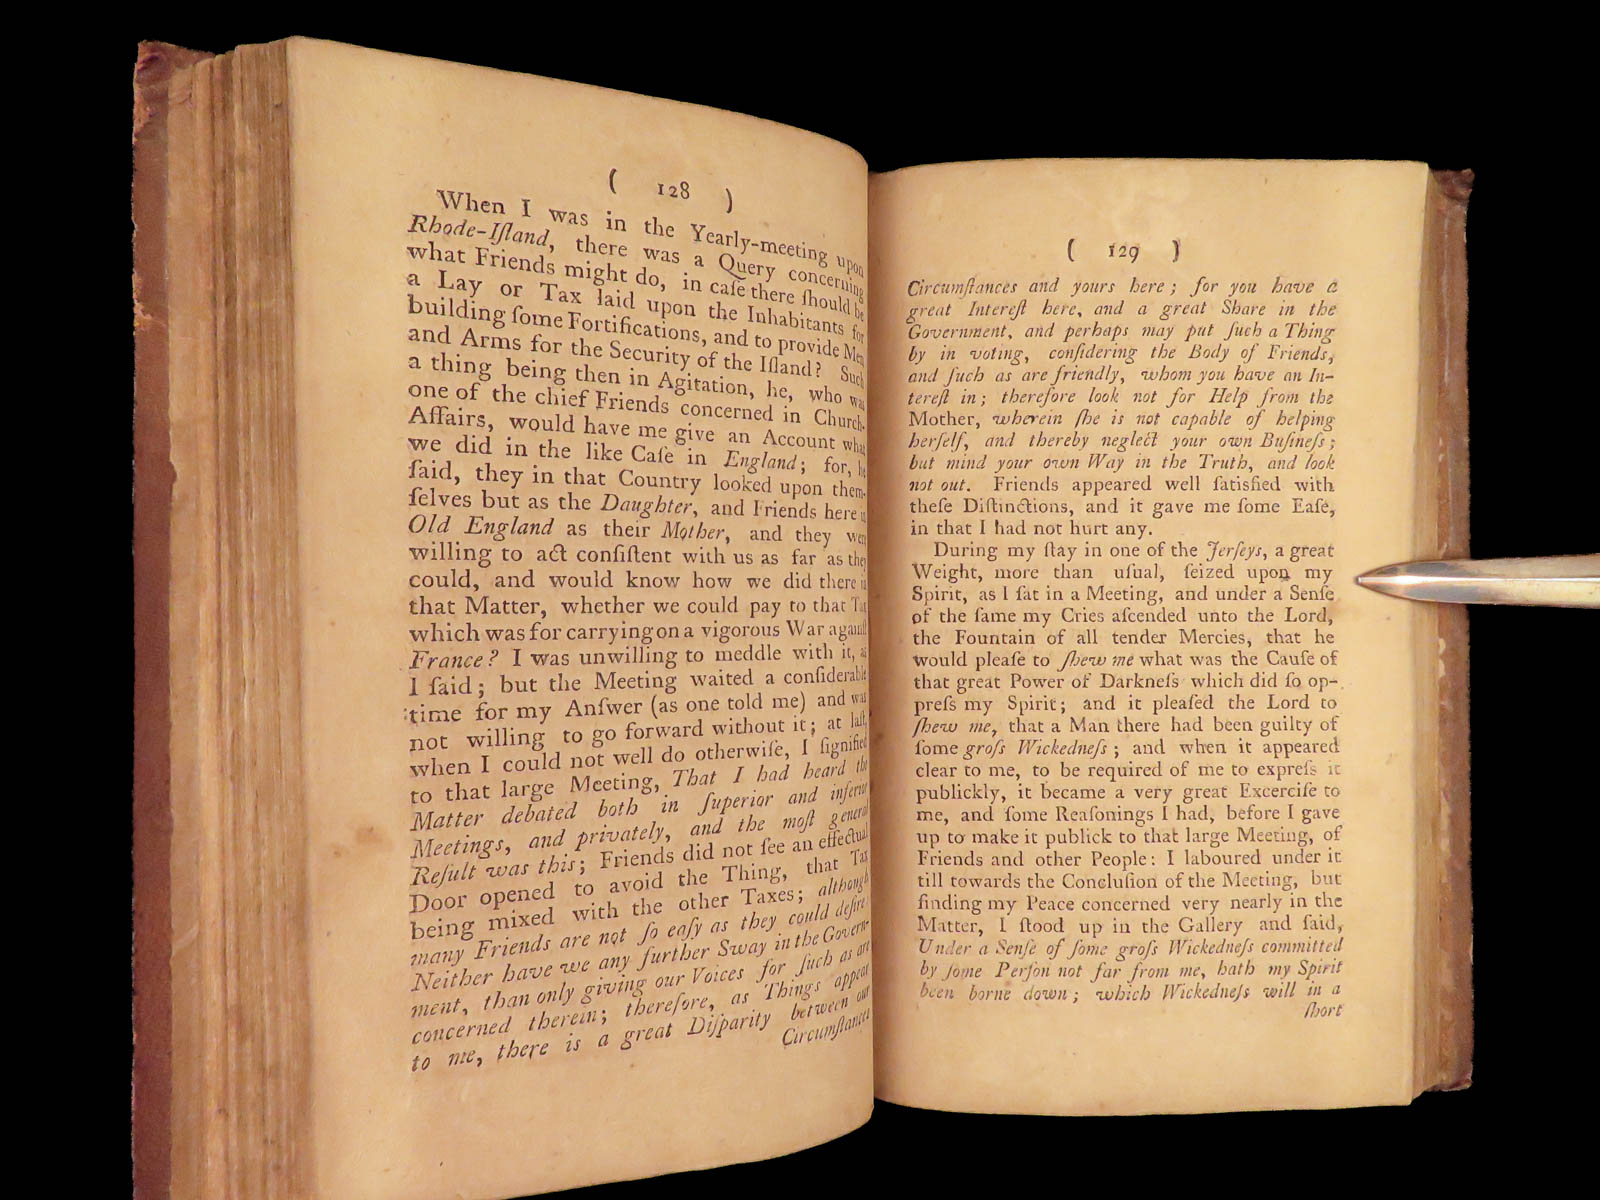 ( 128 )
When I was in the Yearly-meeting upon
Rhode-Iſland, there was a Query concerning
what Friends might do, in caſe there ſhould be
a Lay or Tax laid upon the Inhabitants for
building ſome Fortifications, and to provide Men
and Arms for the Security of the Iſland? Such
a thing being then in Agitation, he, who was
one of the chief Friends concerned in Church-
Affairs, would have me give an Account what
we did in the like Caſe in England; for, he
ſaid, they in that Country looked upon them-
ſelves but as the Daughter, and Friends here in
Old England as their Mother, and they were
willing to act conſiſtent with us as far as they
could, and would know how we did there in
that Matter, whether we could pay to that Tax
which was for carrying on a vigorous War againſt
France? I was unwilling to meddle with it, as
I ſaid; but the Meeting waited a conſiderable
time for my Anſwer (as one told me) and was
not willing to go forward without it; at laſt,
when I could not well do otherwiſe, I ſignified
to that large Meeting, That I had heard the
Matter debated both in ſuperior and inferior
Meetings, and privately, and the moſt general
Reſult was this; Friends did not ſee an effectual
Door opened to avoid the Thing, that Tax
being mixed with the other Taxes; although
many Friends are not ſo eaſy as they could deſire:
Neither have we any further Sway in the Govern-
ment, than only giving our Voices for ſuch as are
concerned therein; therefore, as Things appear
to me, there is a great Diſparity between our
Circumſtances
( 129 )
Circumſtances and yours here; for you have a
great Intereſt here, and a great Share in the
Government, and perhaps may put ſuch a Thing
by in voting, conſidering the Body of Friends,
and ſuch as are friendly, whom you have an In-
tereſt in; therefore look not for Help from the
Mother, wherein ſhe is not capable of helping
herſelf, and thereby neglect your own Buſineſs;
but mind your own Way in the Truth, and look
not out. Friends appeared well ſatisfied with
theſe Diſtinctions, and it gave me ſome Eaſe,
in that I had not hurt any.
During my ſtay in one of the Jerſeys, a great
Weight, more than uſual, ſeized upon my
Spirit, as I ſat in a Meeting, and under a Senſe
of the ſame my Cries aſcended unto the Lord,
the Fountain of all tender Mercies, that he
would pleaſe to ſhew me what was the Cauſe of
that great Power of Darkneſs which did ſo op-
preſs my Spirit; and it pleaſed the Lord to
ſhew me, that a Man there had been guilty of
ſome groſs Wickedneſs; and when it appeared
clear to me, to be required of me to expreſs it
publickly, it became a very great Excerciſe to
me, and ſome Reaſonings I had, before I gave
up to make it publick to that large Meeting, of
Friends and other People: I laboured under it
till towards the Concluſion of the Meeting, but
finding my Peace concerned very nearly in the
Matter, I ſtood up in the Gallery and ſaid,
Under a Senſe of ſome groſs Wickedneſs committed
by ſome Perſon not far from me, hath my Spirit
been borne down; which Wickedneſs will in a
ſhort